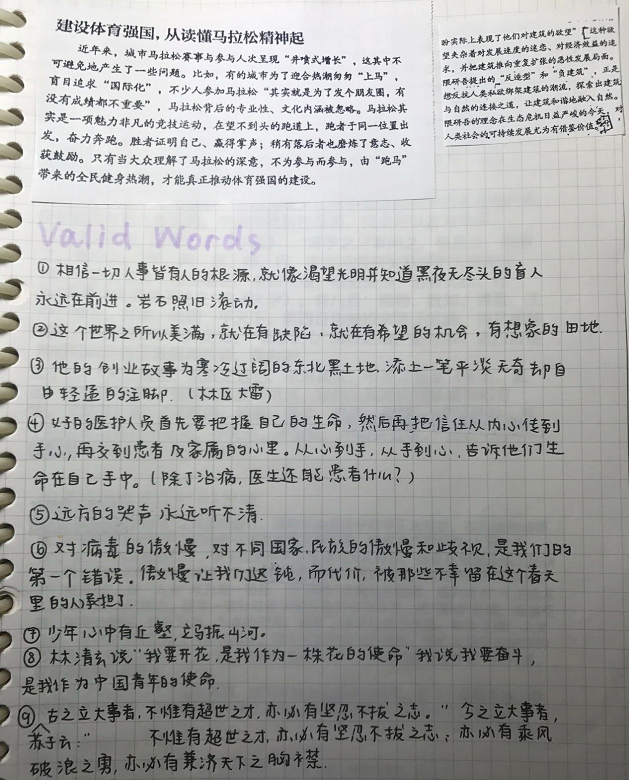 建设体育强国，从读懂马拉松精神起
近年来，城市马拉松赛事与参与人次呈现“井喷式增长”，这其中不
可避免地产生了一些问题。比如，有的城市为了迎合热潮匆匆“上马”，
盲目追求“国际化”，不少人参加马拉松“其实就是为了发个朋友圈，有
没有成绩都不重要”，马拉松背后的专业性、文化内涵被忽略。马拉松其
实是一项魅力非凡的竞技运动，在望不到头的跑道上，跑者于同一位置出
发，奋力奔跑。胜者证明自己、赢得掌声；稍有落后者也磨练了意志、收
获鼓励。只有当大众理解了马拉松的深意，不为参与而参与，由“跑马”
带来的全民健身热潮，才能真正推动体育强国的建设。
盼实际上表现了他们对建筑的欲望”这种欲
望夹杂着对发展速度的迷恋、对经济效益的追
求，并把建筑推向重复扩张的恶性发展局面。
隈研吾提出的“反造型”和“负建筑”，正是
想反抗人类私欲绑架建筑的潮流，探索出建筑
与自然的连接之道，让建筑和谐地融入自然。
隈研吾的理念在生态危机日益严峻的今天，对
人类社会的可持续发展尤为有借鉴价值。
Valid Words
① 相信一切人事皆有人的根源，就像渴望光明并知道黑夜无尽头的盲人
永远在前进。岩石照旧滚动。
② 这个世界之所以美满，就在有缺陷，就在有希望的机会，有想象的田地.
③ 他的创业故事为寒冷辽阔的东北黑土地，添上一笔平淡无奇却自
由轻逸的注脚.（林区大雷）
④ 好的医护人员首先要把握自己的生命，然后再把信任从内心传到
手心，再交到患者及家属的心里。从心到手，从手到心，告诉他们生
命在自己手中。（除了治病，医生还能患者什么？）
⑤ 远方的哭声永远听不清.
⑥ 对病毒的傲慢，对不同国家、民族的傲慢和歧视，是我们的
第一个错误。傲慢让我们迟钝，而代价，被那些不幸留在这个春天
里的人承担了.
⑦ 少年心中有丘壑，立马振山河。
⑧ 林清玄说“我要开花，是我作为一株花的使命”我说我要奋斗，
是我作为中国青年的使命.
⑨ 古之立大事者，不惟有超世之才，亦必有坚忍不拔之志。”今之立大事者，
苏子云：“ 不惟有超世之才，亦必有坚忍不拔之志；亦必有乘风
破浪之勇，亦必有兼济天下之胸襟.